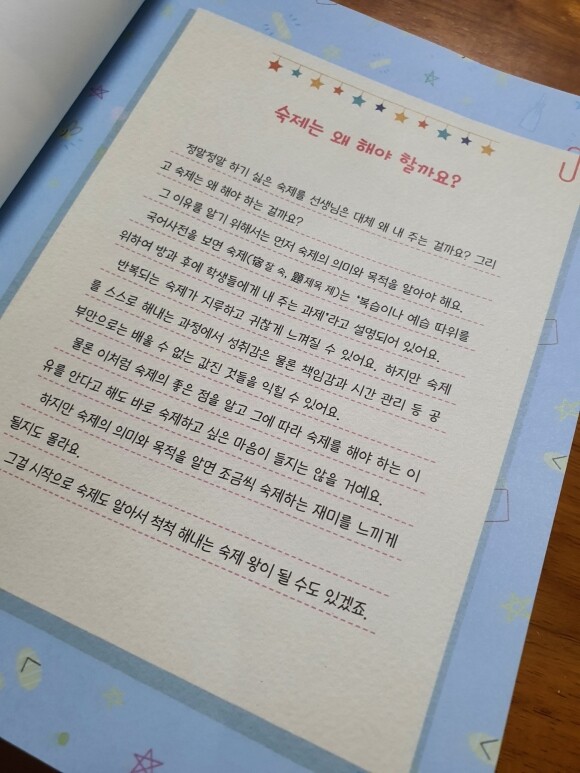 숙제는 왜 해야 할까요?
정말정말 하기 싫은 숙제를 선생님은 대체 왜 내 주는 걸까요? 그리
고 숙제는 왜 해야 하는 걸까요?
그 이유를 알기 위해서는 먼저 숙제의 의미와 목적을 알아야 해요.
국어사전을 보면 숙제(宿잘 숙, 題제목 제)는 '복습이나 예습 따위를
위하여 방과 후에 학생들에게 내 주는 과제'라고 설명되어 있어요.
반복되는 숙제가 지루하고 귀찮게 느껴질 수 있어요. 하지만 숙제
를 스스로 해내는 과정에서 성취감은 물론 책임감과 시간 관리 등 공
부만으로는 배울 수 없는 값진 것들을 익힐 수 있어요.
물론 이처럼 숙제의 좋은 점을 알고 그에 따라 숙제를 해야 하는 이
유를 안다고 해도 바로 숙제하고 싶은 마음이 들지는 않을 거예요.
하지만 숙제의 의미와 목적을 알면 조금씩 숙제하는 재미를 느끼게
될지도 몰라요.
그걸 시작으로 숙제도 알아서 척척 해내는 숙제 왕이 될 수도 있겠죠.